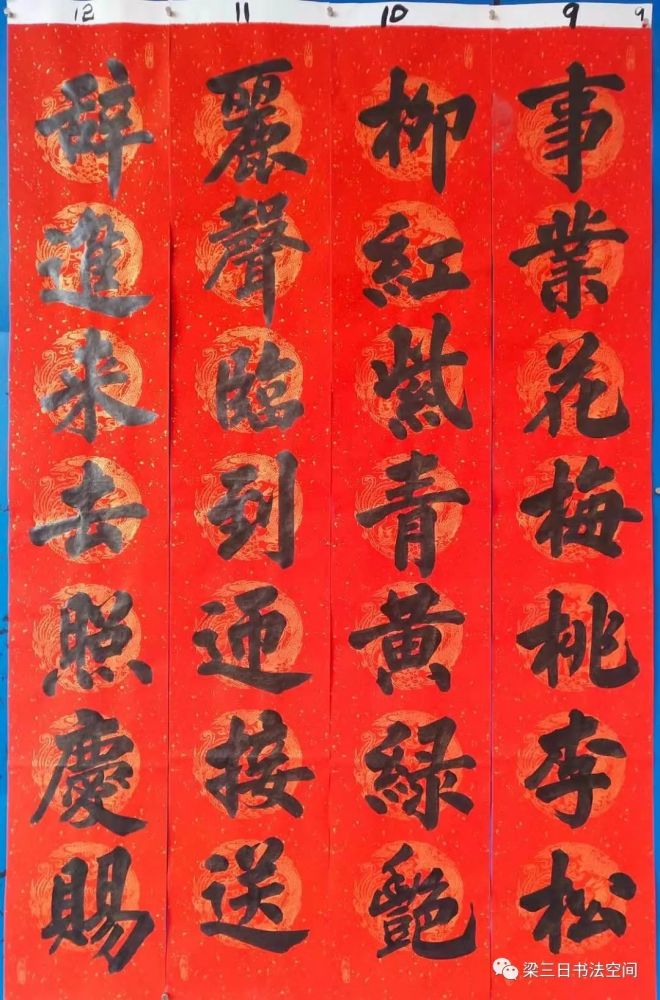 12 11 10 9 9
事業花梅桃李松
柳紅紫青黄緑艷
麗聲臨到迎接送
辞進来去照慶賜
梁三日书法空间